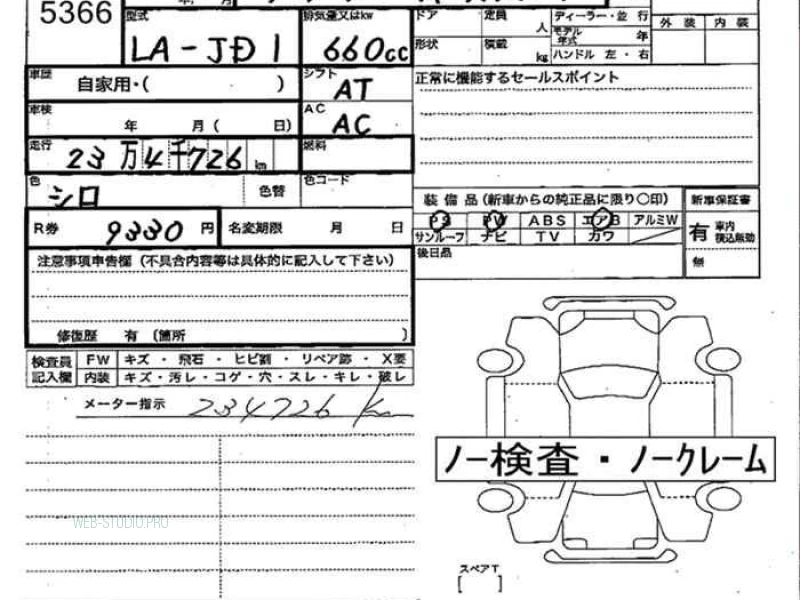 5366
型式 排気量又はkw ドア 定員 人 ディーラー・並行 外装 内装
LA-JD1 660cc 形状 積載 kg モデル年式 年 ハンドル 左・右
車歴 自家用・( ) シフト AT 正常に機能するセールスポイント
車検 年 月( 日) AC AC
走行 23万4千726km 燃料
色 シロ 色替 色コード
装備品(新車からの純正品に限り○印) 新車保証書
R券 9330円 名変期限 月 日 PS PW ABS エアB アルミW 有 車内積込無効
サンルーフ ナビ TV カワ
後日品 無
注意事項申告欄(不具合内容等は具体的に記入して下さい)
修復歴 有 〔箇所 〕
検査員 FW キズ・飛石・ヒビ割・リペア跡・X要
記入欄 内装 キズ・汚レ・コゲ・穴・スレ・キレ・破レ
メーター指示 234726 Km
ノー検査・ノークレーム
WEB-STUDIO.PRO
スペアT
[ ]